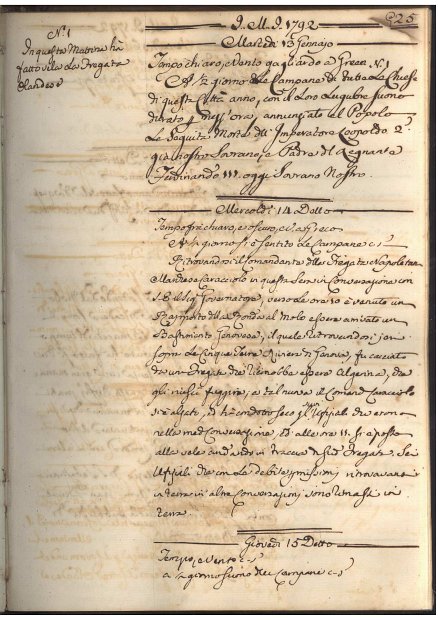 J. M. J. 1792
225
Martedì 13 Gennajo
N.º 1
In questa Mattina hà
fatto vela la Fregata
Olandese
Tempo chiaro, e Vento gagliardo a Greco N.1
A ½ giorno le Campane di tutte le Chiese
di questa Città anno, con il Loro Lugubre suono
durato p mezz'ora, annunziato al Popolo
La Seguita Morte dell Imperatore Leopoldo 2º
già nostro Sovrano, e Padre del Regnante
Ferdinando III. oggi Sovrano Nostro.
Mercoldì 14 Detto
Tempo frè chiaro, e oscuro, e V. a Greco
A ½ giorno si è sentito le Campane c. s.
Ritrovandosi il Comandante della Fregata Napoletana
Caracciolo in questa sera in Conversazione con
Governatore, verso le ore 10 è venuto un
Rapporto della Ronda al Molo essere arrivato un
Bastimento Genovese, il quale ritrovandosi
sopra Le Cinque Terre Riviera di Genova, fu
da un Fregata che riconobbe essere Algerina, da
gli riuscì fuggire; a tal nuova il Comand Caracciolo
si è alzato, ed hà condotto seco gl'Uffiziali che erono
nella med Conversazione, ed alle ore 11 si è posto
alla vela andando in traccia di d Fregata. Gl
Uffiziali che con Le debite permissioni ritrovavansi
in altre Conversazioni sono rimasti in
terra.
Giovedì 15 Detto
Tempo, e Vento c. s.
a ½ giorno suono delle Campane c. s.